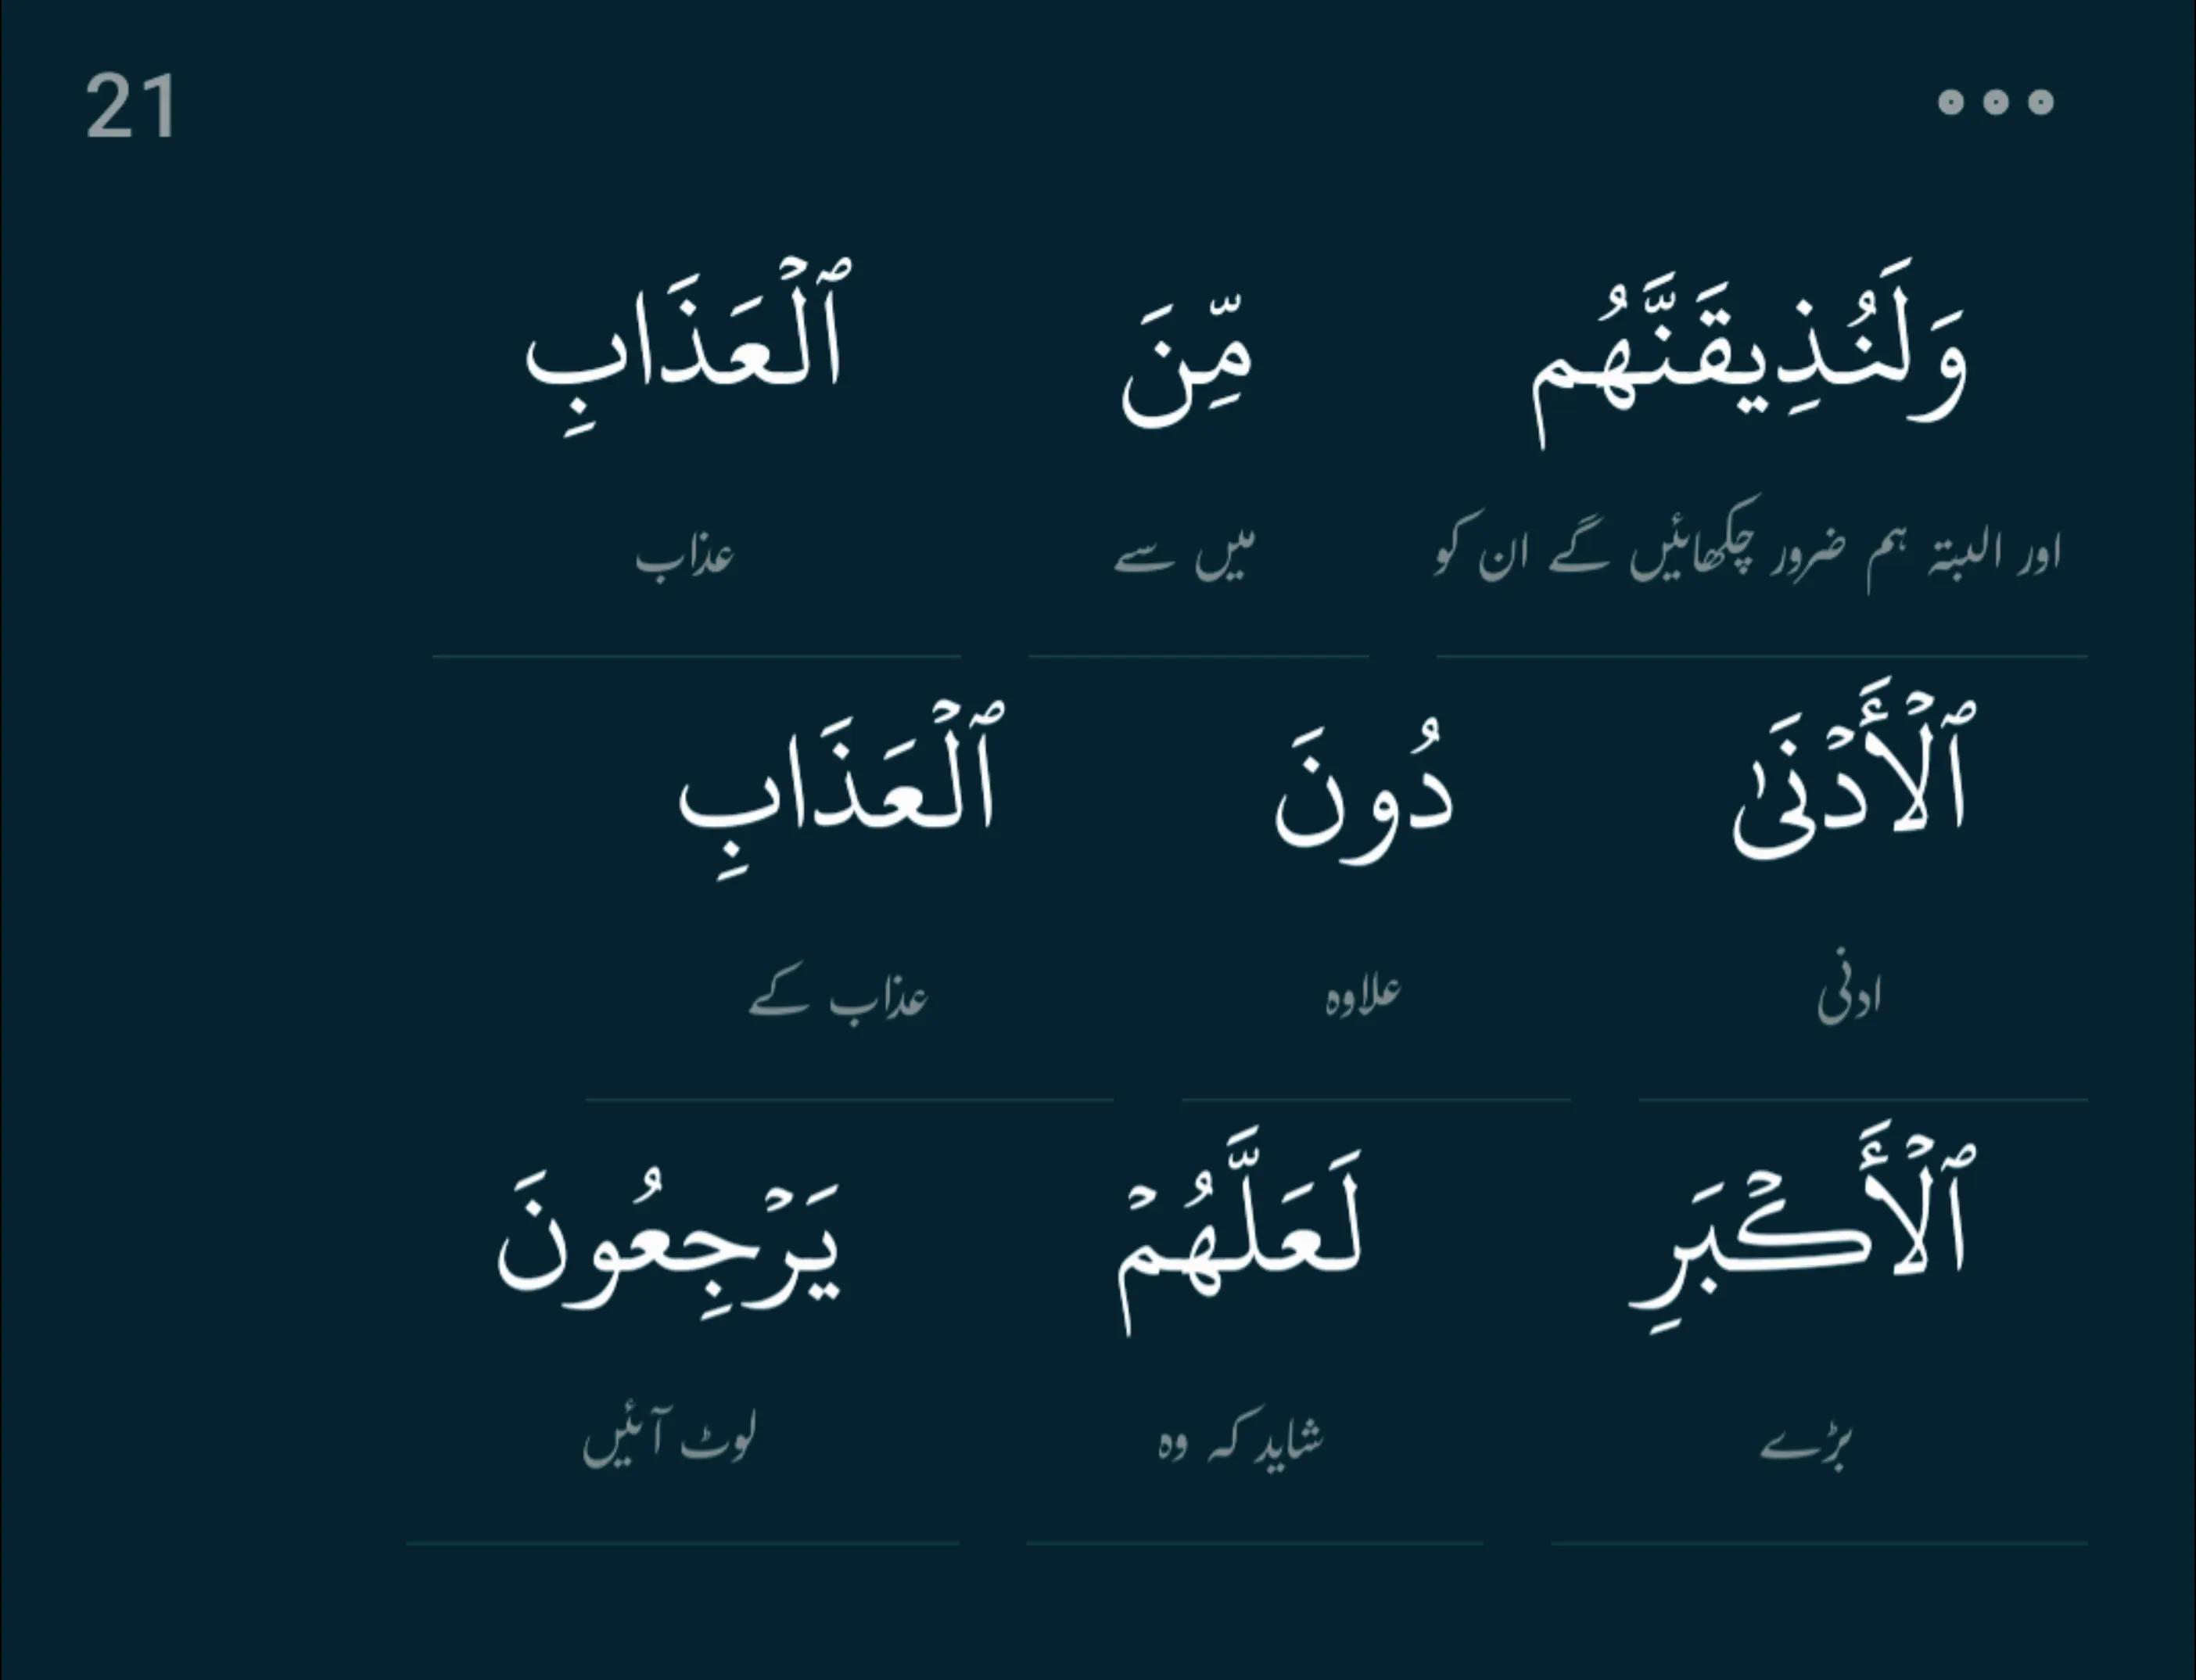 21
وَلَنُذِيقَنَّهُم مِّنَ ٱلۡعَذَابِ
اور البتہ ہم ضرور چکھائیں گے ان کو میں سے عذاب
ٱلۡأَدۡنَىٰ دُونَ ٱلۡعَذَابِ
ادنی علاوہ عذاب کے
ٱلۡأَكۡبَرِ لَعَلَّهُمۡ يَرۡجِعُونَ
بڑے شاید کہ وہ لوٹ آئیں